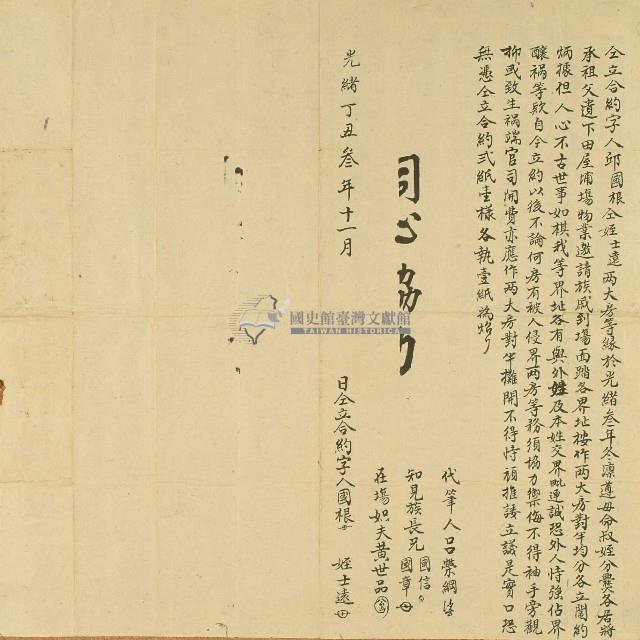 仝立合約字人邱國根仝姪士遠兩大房等緣於光緒叁年冬凜遵母命叔姪分爨各居將
承祖父遺下田屋埔塲物業邀請族戚到塲面踏各界址按作兩大房對半均分各立鬮約
炳據但人心不古世事如棋我等界址各有與外姓及本姓交界毗連誠恐外人恃強佔界
釀禍等欵自今立約以後不論何房有被人侵界兩房等務須協力禦侮不得袖手旁觀
抑或致生禍端官司開費亦應作兩大房對半攤開不得恃頑推諉立議是實口恐
無憑仝立合約弍紙壹樣各執壹紙為炤
代筆人呂榮綱
知見族長兄國信
國章
在塲姐夫黃世品
同心協力
光緒丁丑叁年十一月 日仝立合約字人國根
姪士遠
國史館臺灣文獻館
TAIWAN HISTORICA